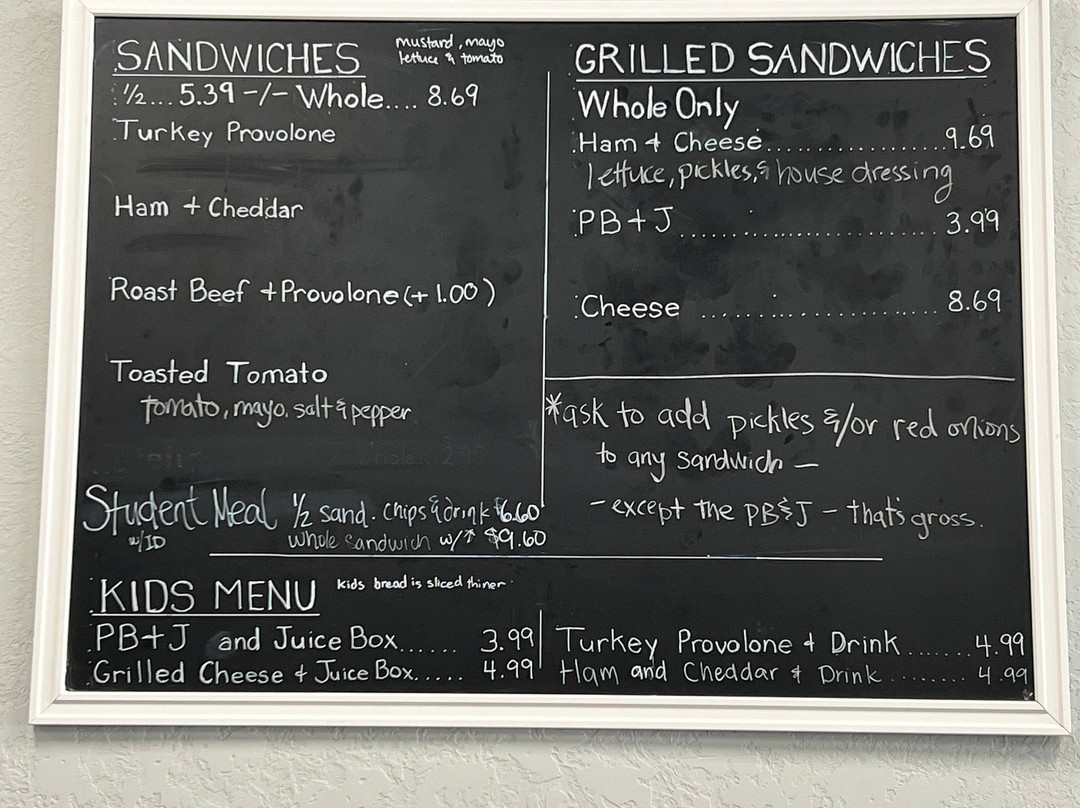 SANDWICHES
mustard, mayo
lettuce & tomato
½... 5.39 -/- Whole.... 8.69
Turkey Provolone
Ham + Cheddar
Roast Beef + Provolone (+ 1.00)
Toasted Tomato
tomato, mayo, salt & pepper
Student Meal ½ sand. chips & drink $6.60
w/ID
whole sandwich w/↑ $9.60
GRILLED SANDWICHES
Whole Only
Ham & Cheese.....................9.69
lettuce, pickles, & house dressing
PB+J.............................3.99
Cheese ..........................8.69
*ask to add pickles &/or red onions
to any sandwich —
- except the PB&J - that's gross.
KIDS MENU
kids bread is sliced thiner
PB+J and Juice Box...... 3.99
Grilled Cheese & Juice Box..... 4.99
Turkey Provolone & Drink.......4.99
Ham and Cheddar & Drink ........ 4.99